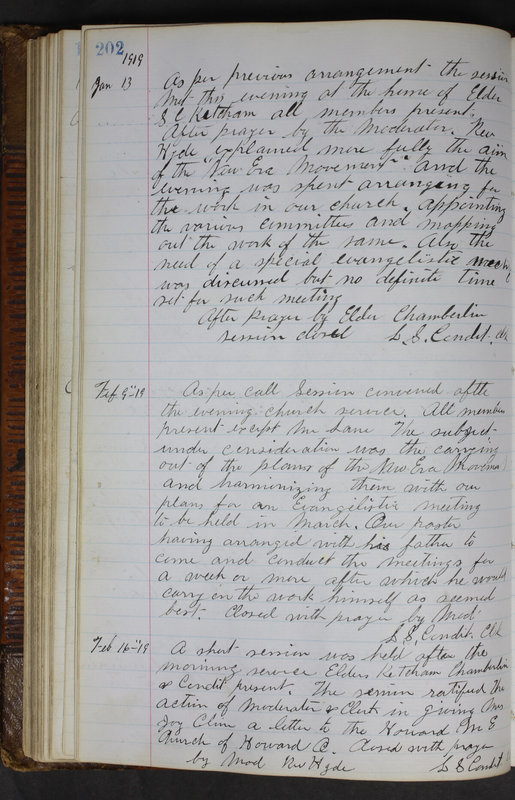 202
1919
Jan 13 As per previous arrangement the session
met this evening at the home of Elder
S C Ketcham all members present.
After prayer by the Moderator. Rev
Hyde explained more fully the aim
of the "New Era Movement" and the
evening was spent arranging for
the work in our church. appointing
the various committees and mapping
out the work of the same. Also the
need of a special evangelistic meeting
was discussed but no definite time
set for such meeting
After Prayer by Elder Chamberlin
session closed L. S. Condit. Clk
Feb 9"-19 As per call Session convened after
the evening church service. All members
present except Mr Lane The subject
under consideration was the carrying
out of the plans of the New Era Movement
and harmonizing them with our
plans for an Evangelistic meeting
to be held in March. Our pastor
having arranged with his father to
come and conduct the meetings for
a week or more after which he would
carry on the work himself as seemed
best. Closed with prayer by Mod
L. S. Condit. Clk
Feb 16-"19 A short session was held after the
morning service Elders Ketcham Chamberlin
& Condit present. The session ratified the
action of Moderator & Clerk in giving Mrs
Joy Cline a letter to the Howard M E
Church of Howard O. Closed with prayer
by Mod Rev Hyde L S Condit